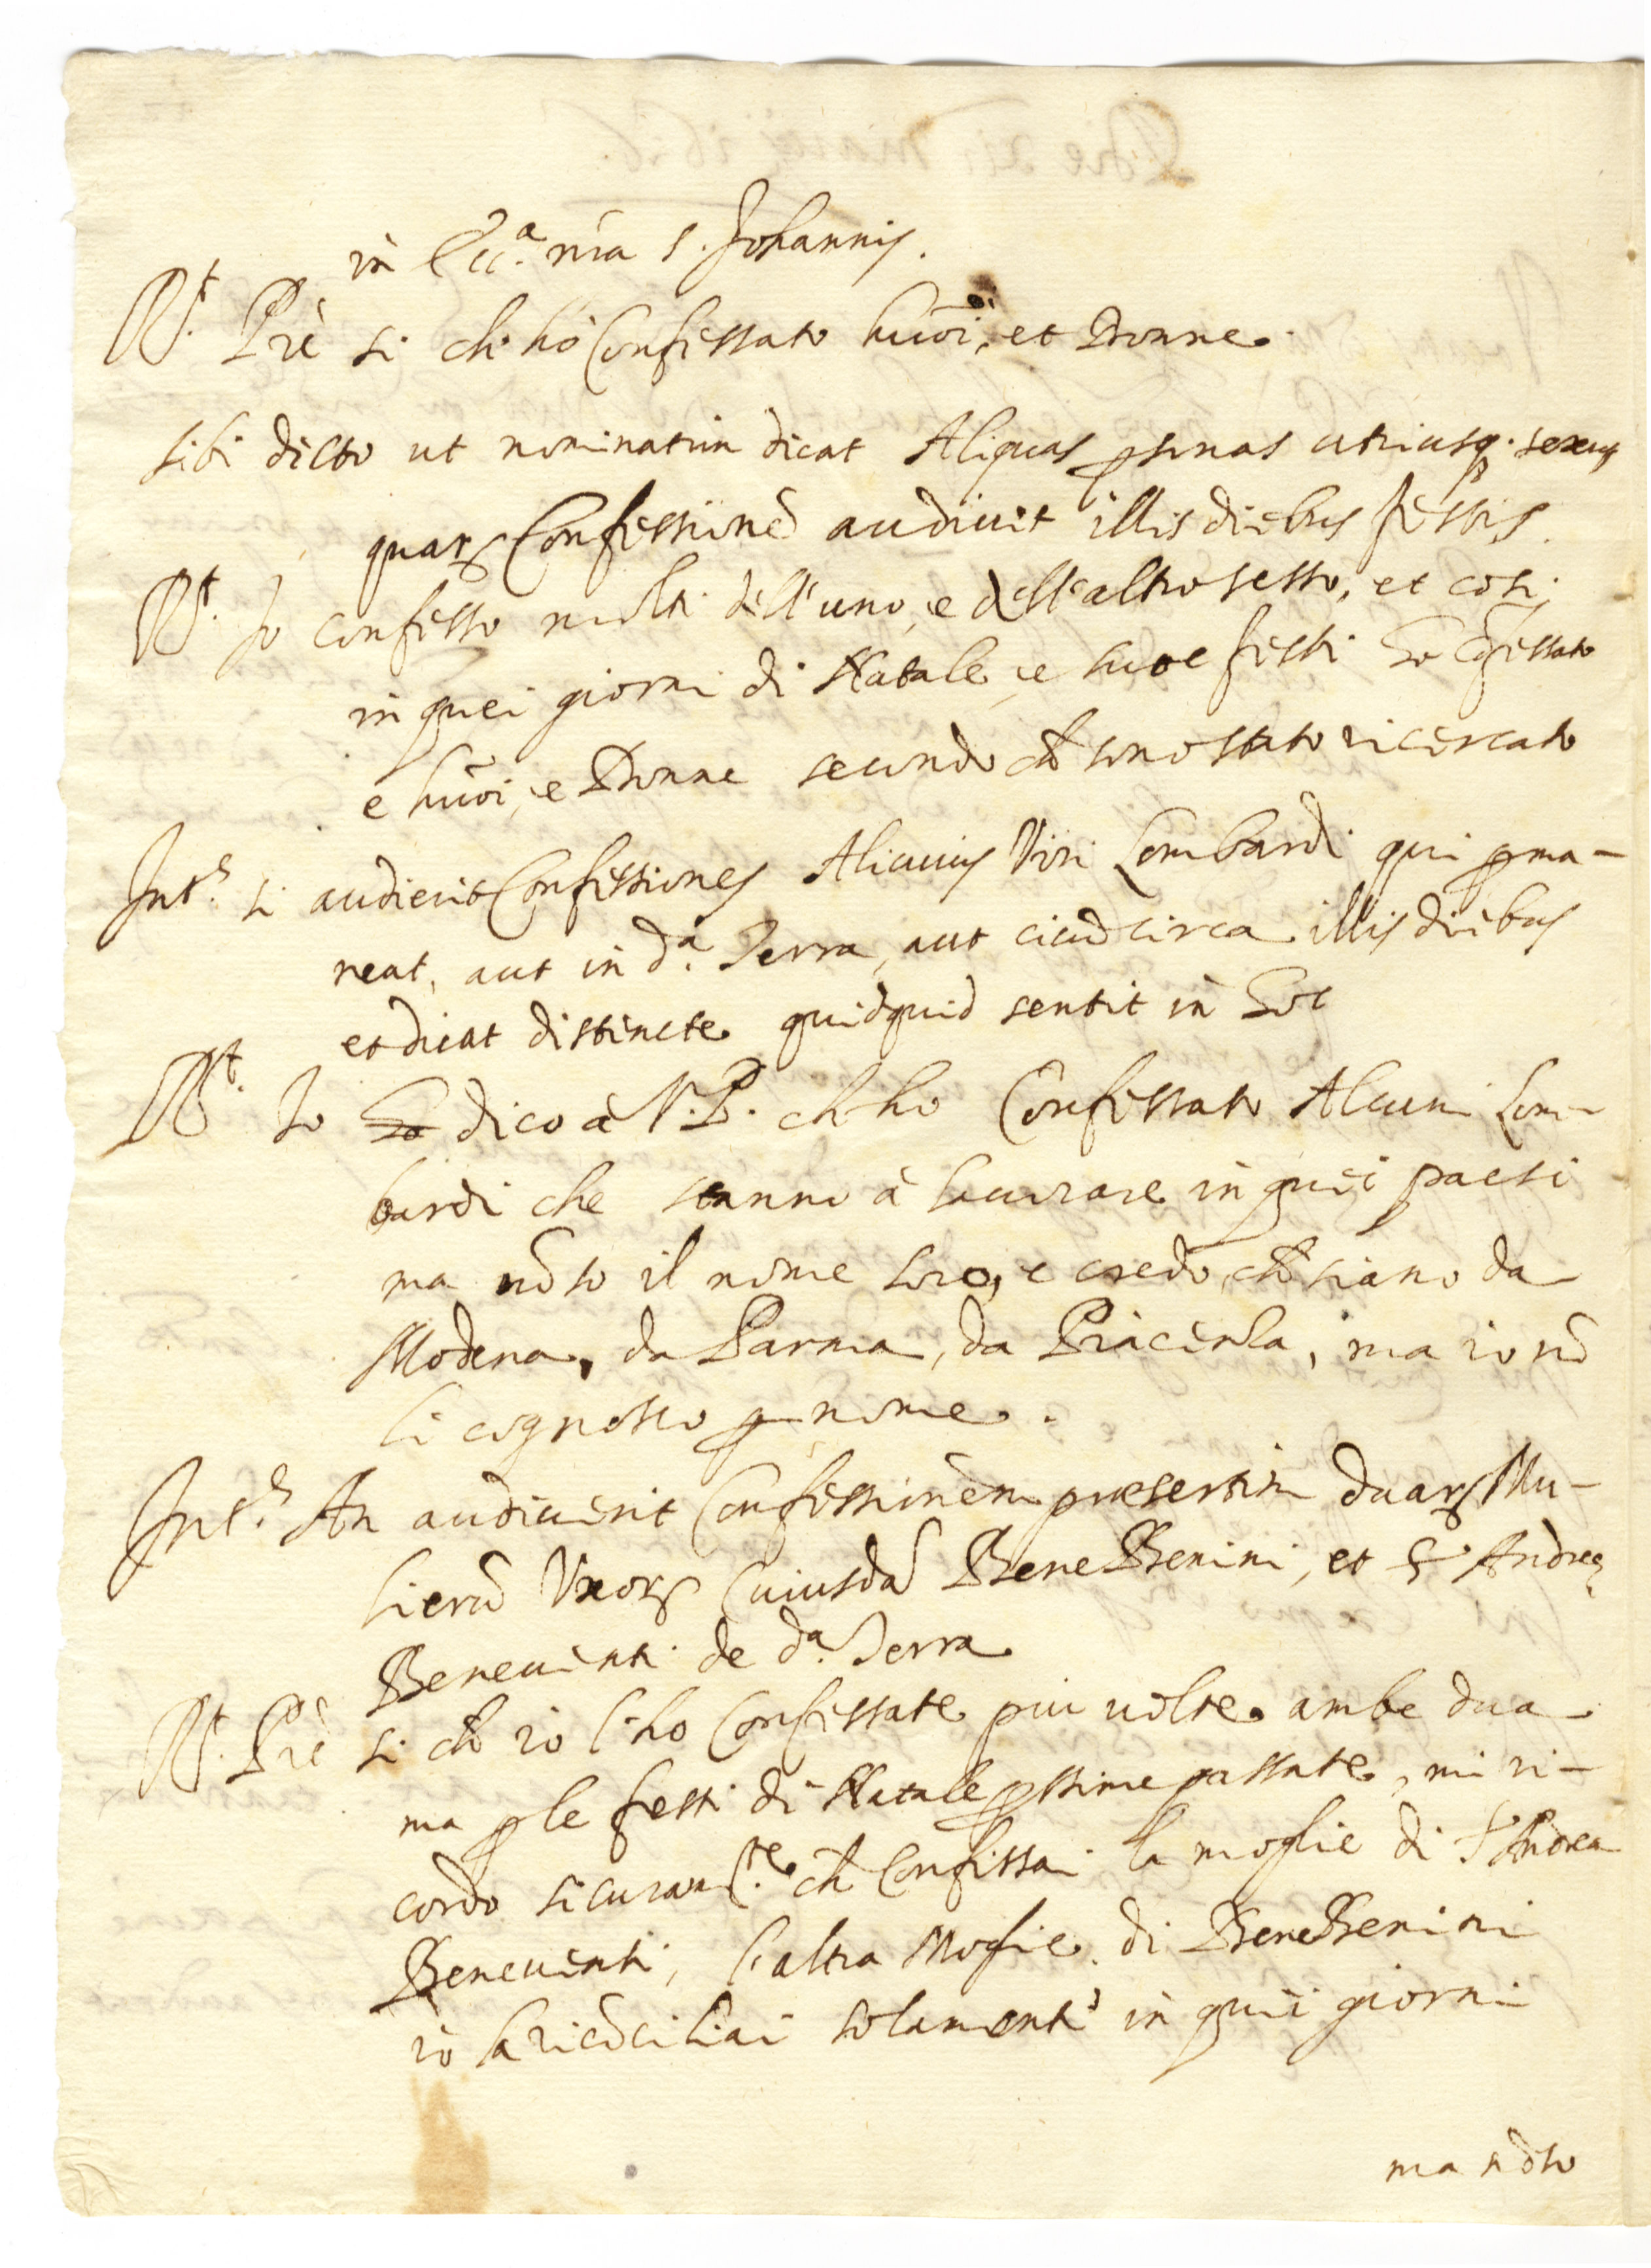 in Ecc.a nr̃a S. Johannis.
Rt. Prè si ch'hò Confessato huõi, et Donne.
sibi dicto ut nominatim dicat Aliquas psonas utriusq. sexus
quarꝝ Confessionẽ audivit illis diebus festis.
Rt. Io confesso molti dell'uno, e dell'altro sesso, et così
in quei giorni di Natale, e suoe festi ho Cõfessato
e huõi, e Donne secondo ch̃ sono stato ricercato
Int.s si audierit Confessiones Alicuius Viri Lombardi qui pma-
neat, aut in d.a Terra, aut eiuscirca illis diebus
et dicat distincte quidquid sentit in hoc
Rt. Io dico à V.P. ch'ho Confessato Alcuni Lom-
bardi che stanno à lauorare in quei paesi
ma nõ so il nome loro, e credo, ch̃ siano da
Modena, da Parma, da Piacenza, ma io nõ
li cognosco p nome.
Int.s An audiuerit Confessionem presertim duarꝝ Mu-
lierũ Uxorꝝ Cuiusdã Bene Benini, et S. Andreę
Beneuenti de d.a Terra
Rt. Prè si ch̃ io l'ho Confessate piu uolte ambe dua
ma p le festi di Natale pssime passate, mi ri-
cordo sicuram.te ch̃ Confessai la moglie di S. Andrea
Beneuenti, l'altra Moglie di Bene Benini
io la ricõciliai solamente in quei giorni
ma nõ so